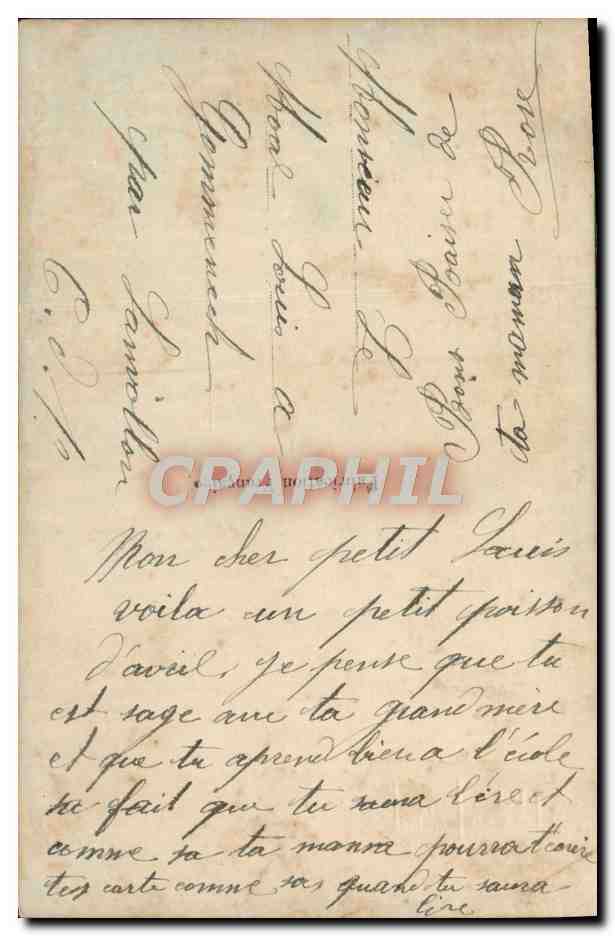 Mon cher petit Louis
voila un petit poisson
d'avril, je pense que tu
est sage avec ta grand mère
et que tu aprend bien a l'école
sa fait que tu saura lire et
comme sa ta maman pourra t'ecrire
tes carte comme sa quand tu saura
lire
Monsieur Le
Moal Louis a
Pommerech
par Lanvollon
C. d. N.
Bons Baiser de
ta maman Rose
Fabrication Française
CPRAPHIL